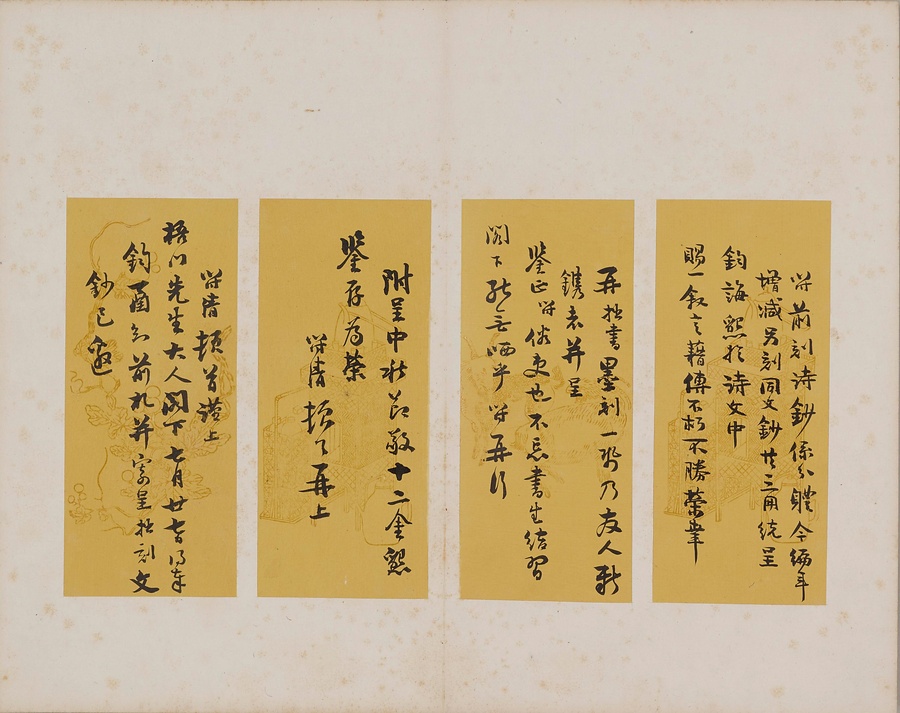 前刻詩鈔係分體今編年
增減另刻同文鈔共三角統呈
鈞誨懇於詩文中
賜一敘言藉傳不朽不勝榮幸
再拙書墨刻一冊乃友人新
鐫袁并呈
鑒正 俗吏也不忘書生結習
閣下能無哂乎 再行
附呈中秋節敬十二金懇
鑒存為榮
清頓首再上
清頓首謹上
梧門先生大人閣下七月廿七日得奉
鈞函知前札并寄呈拙刻文
鈔已邀